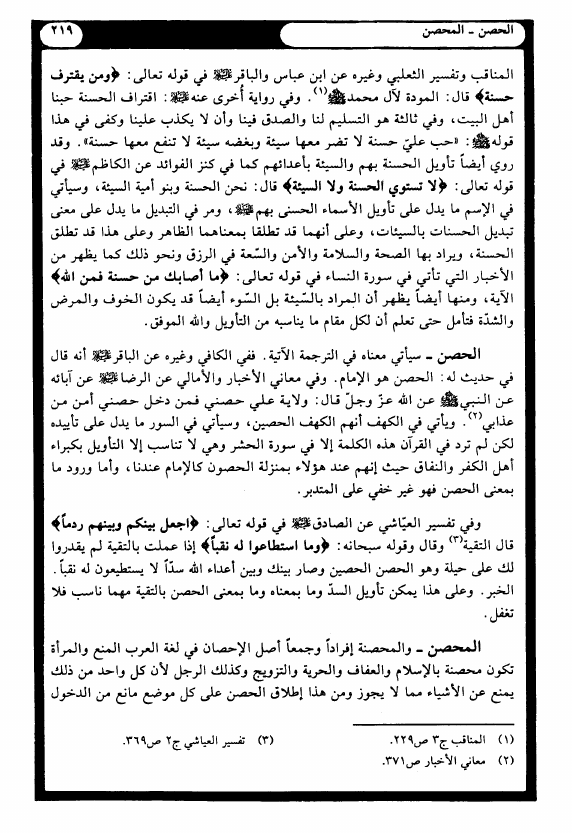 الحصن ـ المحصن
٢١٩
المناقب وتفسير الثعلبي وغيره عن ابن عباس والباقر ﷺ في قوله تعالى: ﴿ومن يقترف
حسنة﴾ قال: المودة لآل محمد ﷺ(١). وفي رواية أُخرى عنه ﷺ: اقتراف الحسنة حبنا
أهل البيت، وفي ثالثة هو التسليم لنا والصدق فينا وأن لا يكذب علينا وكفى في هذا
قوله ﷺ: «حب عليّ حسنة لا تضر معها سيئة وبغضه سيئة لا تنفع معها حسنة». وقد
روي أيضاً تأويل الحسنة بهم والسيئة بأعدائهم كما في كنز الفوائد عن الكاظم ﷺ في
قوله تعالى: ﴿لا تستوي الحسنة ولا السيئة﴾ قال: نحن الحسنة وبنو أمية السيئة، وسيأتي
في الإسم ما يدل على تأويل الأسماء الحسنى بهم ﷺ، ومر في التبديل ما يدل على معنى
تبديل الحسنات بالسيئات، وعلى أنهما قد تطلقا بمعناهما الظاهر وعلى هذا قد تطلق
الحسنة، ويراد بها الصحة والسلامة والأمن والسّعة في الرزق ونحو ذلك كما يظهر من
الأخبار التي تأتي في سورة النساء في قوله تعالى: ﴿ما أصابك من حسنة فمن الله﴾
الآية، ومنها أيضاً يظهر أن المراد بالسّيئة بل السّوء أيضاً قد يكون الخوف والمرض
والشدّة فتأمل حتى تعلم أن لكل مقام ما يناسبه من التأويل والله الموفق.
الحصن ـ سيأتي معناه في الترجمة الآتية. ففي الكافي وغيره عن الباقر ﷺ أنه قال
في حديث له: الحصن هو الإمام. وفي معاني الأخبار والأمالي عن الرضا ﷺ عن آبائه
عن النبي ﷺ عن الله عزّ وجلّ قال: ولاية علي حصني فمن دخل حصني أمن من
عذابي(٢). ويأتي في الكهف أنهم الكهف الحصين، وسيأتي في السور ما يدل على تأييده
لكن لم ترد في القرآن هذه الكلمة إلا في سورة الحشر وهي لا تناسب إلا التأويل بكبراء
أهل الكفر والنفاق حيث إنهم عند هؤلاء بمنزلة الحصون كالإمام عندنا، وأما ورود ما
بمعنى الحصن فهو غير خفي على المتدبر.
وفي تفسير العيّاشي عن الصادق ﷺ في قوله تعالى: ﴿اجعل بينكم وبينهم ردماً﴾
قال التقية(٣) وقال وقوله سبحانه: ﴿وما استطاعوا له نقباً﴾ إذا عملت بالتقية لم يقدروا
لك على حيلة وهو الحصن الحصين وصار بينك وبين أعداء الله سدّاً لا يستطيعون له نقباً.
الخبر. وعلى هذا يمكن تأويل السدّ وما بمعناه وما بمعنى الحصن بالتقية مهما ناسب فلا
تغفل.
المحصن ـ والمحصنة إفراداً وجمعاً أصل الإحصان في لغة العرب المنع والمرأة
تكون محصنة بالإسلام والعفاف والحرية والتزويج وكذلك الرجل لأن كل واحد من ذلك
يمنع عن الأشياء مما لا يجوز ومن هذا إطلاق الحصن على كل موضع مانع من الدخول
(١) المناقب ج٣ ص٢٢٩.
(٢) معاني الأخبار ص٣٧١.
(٣) تفسير العياشي ج٢ ص٣٦٩.